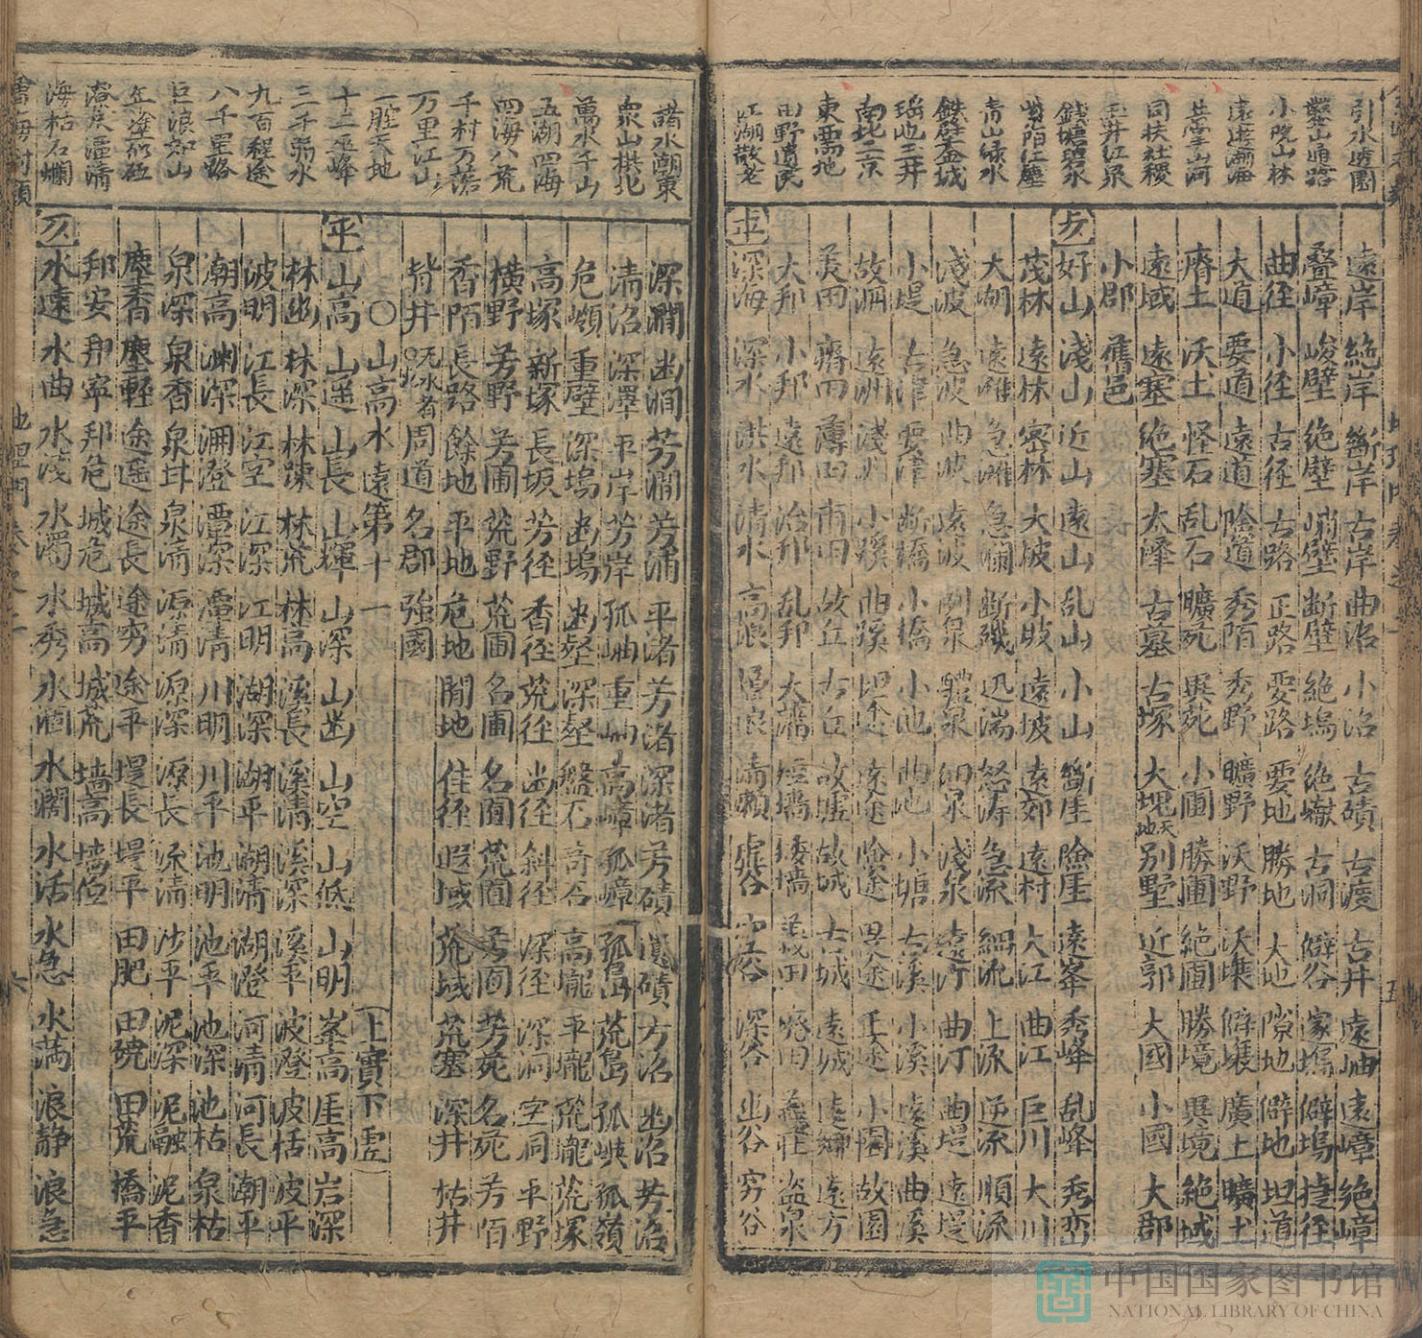 引水適園
鑿山通路
小院山林
遠遊瀚海
甘棠山河
同扶社稷
玉井江泉
錢塘碧泉
紫陌红塵
青山緑水
鉄壁金城
瑶池玉井
南北二京
東西為地
田野遺民
江湖散老
遠岸 絶岸 斷岸 古岸 曲沼 小沼 古磧 古渡 古井 遠岫 遠嶂 絶嶂
叠嶂 峻壁 絶壁 峭壁 断壁 絶塢 絶巘 古洞 僻谷 家塢 僻塢 捷徑
曲径 小径 古径 古路 正路 要路 要地 勝地 大地 隙地 僻地 坦道
大道 要道 遠道 隂道 秀陌 秀野 曠野 沃野 沃壤 僻壤 廣土 曠土
瘠土 沃土 怪石 乱石 曠苑 異苑 小圃 勝圃 絶圃 勝境 異境 絶域
遠域 遠塞 絶塞 太峰 古墓 古塚 大塊天地 别墅 近郭 大國 小國 大郡
小郡 舊邑
仄 好山 淺山 近山 遠山 乱山 小山 斷崖 險崖 遠峯 秀峰 乱峰 秀峦
茂林 遠林 密林 大陂 小陂 遠坡 遠郊 遠村 大江 曲江 巨川 大川
大湖 遠灘 急灘 急瀾 断磯 迅湍 怒涛 急流 細流 上流 逆流 順流
淺波 急波 曲波 遠波 冽泉 醴泉 細泉 淺泉 遠汀 曲汀 曲堤 遠堤
小堤 古津 要津 断橋 小橋 小池 曲池 小塘 古溪 小溪 遠溪 曲溪
故洲 遠洲 淺洲 小蹊 曲蹊 坦途 遠途 險途 畏途 正途 小園 故園
美田 瘠田 薄田 甫田 故丘 古丘 故墟 故城 古城 遠城 遠疆 遠方
大邦 小邦 遠邦 治邦 乱邦 大藩 短墻 矮墻 美田 廢田 盗泉
平 深海 深水 洪水 清水 高浪 清瀬 虚谷 深谷 幽谷 穷谷
諸水潮東
衆山拱北
萬水千山
五湖四海
四海八荒
千村万落
万里江山
一腔天地
十二巫峰
三千弱水
九百程途
八千里路
巨浪如山
海枯石爛
深澗 幽澗 芳澗 芳浦 平渚 芳渚 深渚 芳磧 荒磧 方沼 幽沼 芳沼
清沼 深澤 平岸 芳岸 孤岫 重岫 高嶂 孤嶂 孤島 荒島 孤峡 孤嶺
危巔 重壁 深塢 幽塢 幽壑 深壑 盤石 奇石 高隴 平隴 荒隴 荒塚
高塚 新塚 長坂 芳径 香径 荒径 幽径 斜径 深径 深洞 空洞 平野
横野 芳野 芳圃 荒野 荒圃 名圃 名園 荒園 芳園 芳苑 名苑 芳陌
香陌 長路 餘地 平地 危地 閒地 佳径 遐域 荒域 荒塞 深井 枯井
眢井 无水者 周道 名郡 強國
〇山高水遠第十一 上實下虚
平 山高 山遥 山長 山輝 山深 山幽 山空 山低 山明 峯高 崖高 岩深
林幽 林深 林踈 林荒 林高 溪長 溪清 溪深 溪平 波澄 波恬 波平
波明 江長 江空 江深 江明 湖深 湖平 湖清 湖澄 河清 河長 潮平
潮高 渊深 瀰澄 潭深 潭清 川明 川平 池明 池平 池深 池枯 泉枯
泉深 泉香 泉甘 泉清 源清 源深 源長 泳清 沙平 泥深 泥融 泥香
塵香 塵輕 途遥 途長 途穷 途平 堤長 堤平 田肥 田磽 田荒 橋平
邦安 邦寧 邦危 城危 城高 城荒 墙高 墙低
仄 水遠 水曲 水淺 水濁 水秀 水涸 水濶 水活 水急 水满 浪静 浪急
地理門
六
中国国家图书馆
NATIONAL LIBRARY OF CHINA